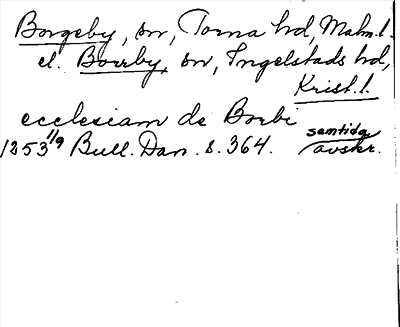 Borgeby, sn, Torna hd, Malm. l.
el. Borrby, sn, Ingelstads hd,
Krist. l.
ecclesiam de Borbi
1253 11/9 Bull. Dan. s. 364. samtida avskr.